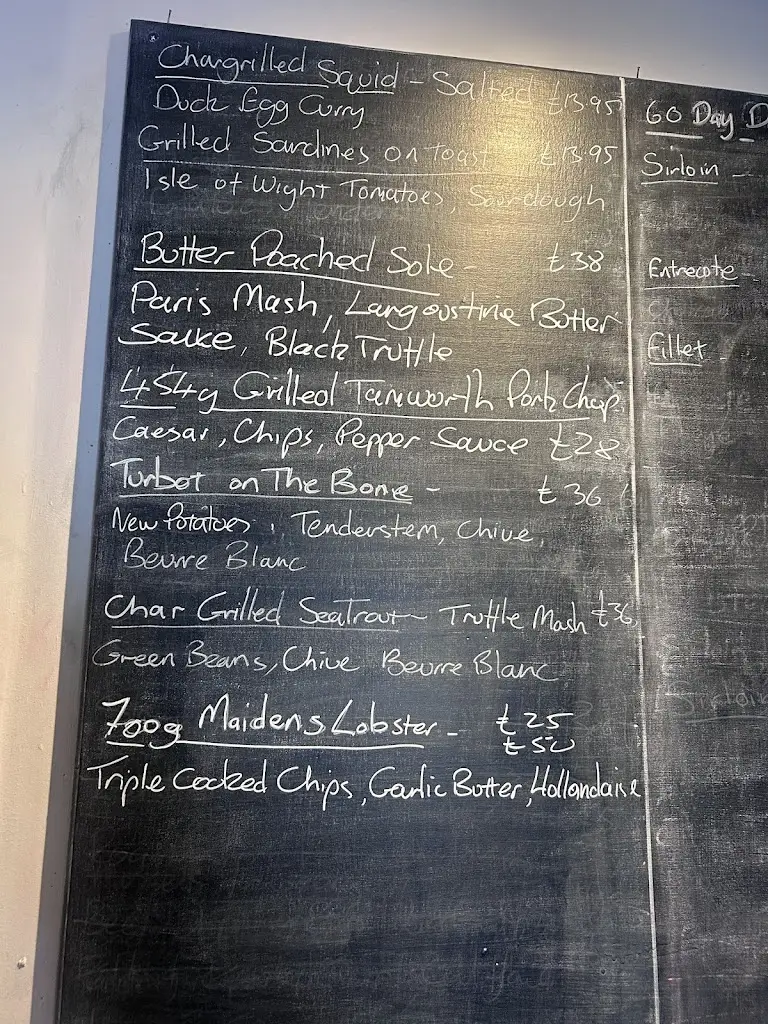 Chargrilled Squid - Salted £13.95
Duck Egg Curry
Grilled Sardines on Toast £13.95
Isle of Wight Tomatoes, Sourdough
Butter Poached Sole - £38
Paris Mash, Langoustine Butter
Sauce, Black Truffle
454g Grilled Tamworth Pork Chop
Caesar, Chips, Pepper Sauce £28
Turbot on The Bone - £36
New Potatoes, Tenderstem, Chive,
Beurre Blanc
Char Grilled Seatrout - Truffle Mash £36
Green Beans, Chive Beurre Blanc
700g Maidens Lobster - £25
£50
Triple Cooked Chips, Garlic Butter, Hollandaise
60 Day D
Sirloin -
Entrecote -
Fillet -